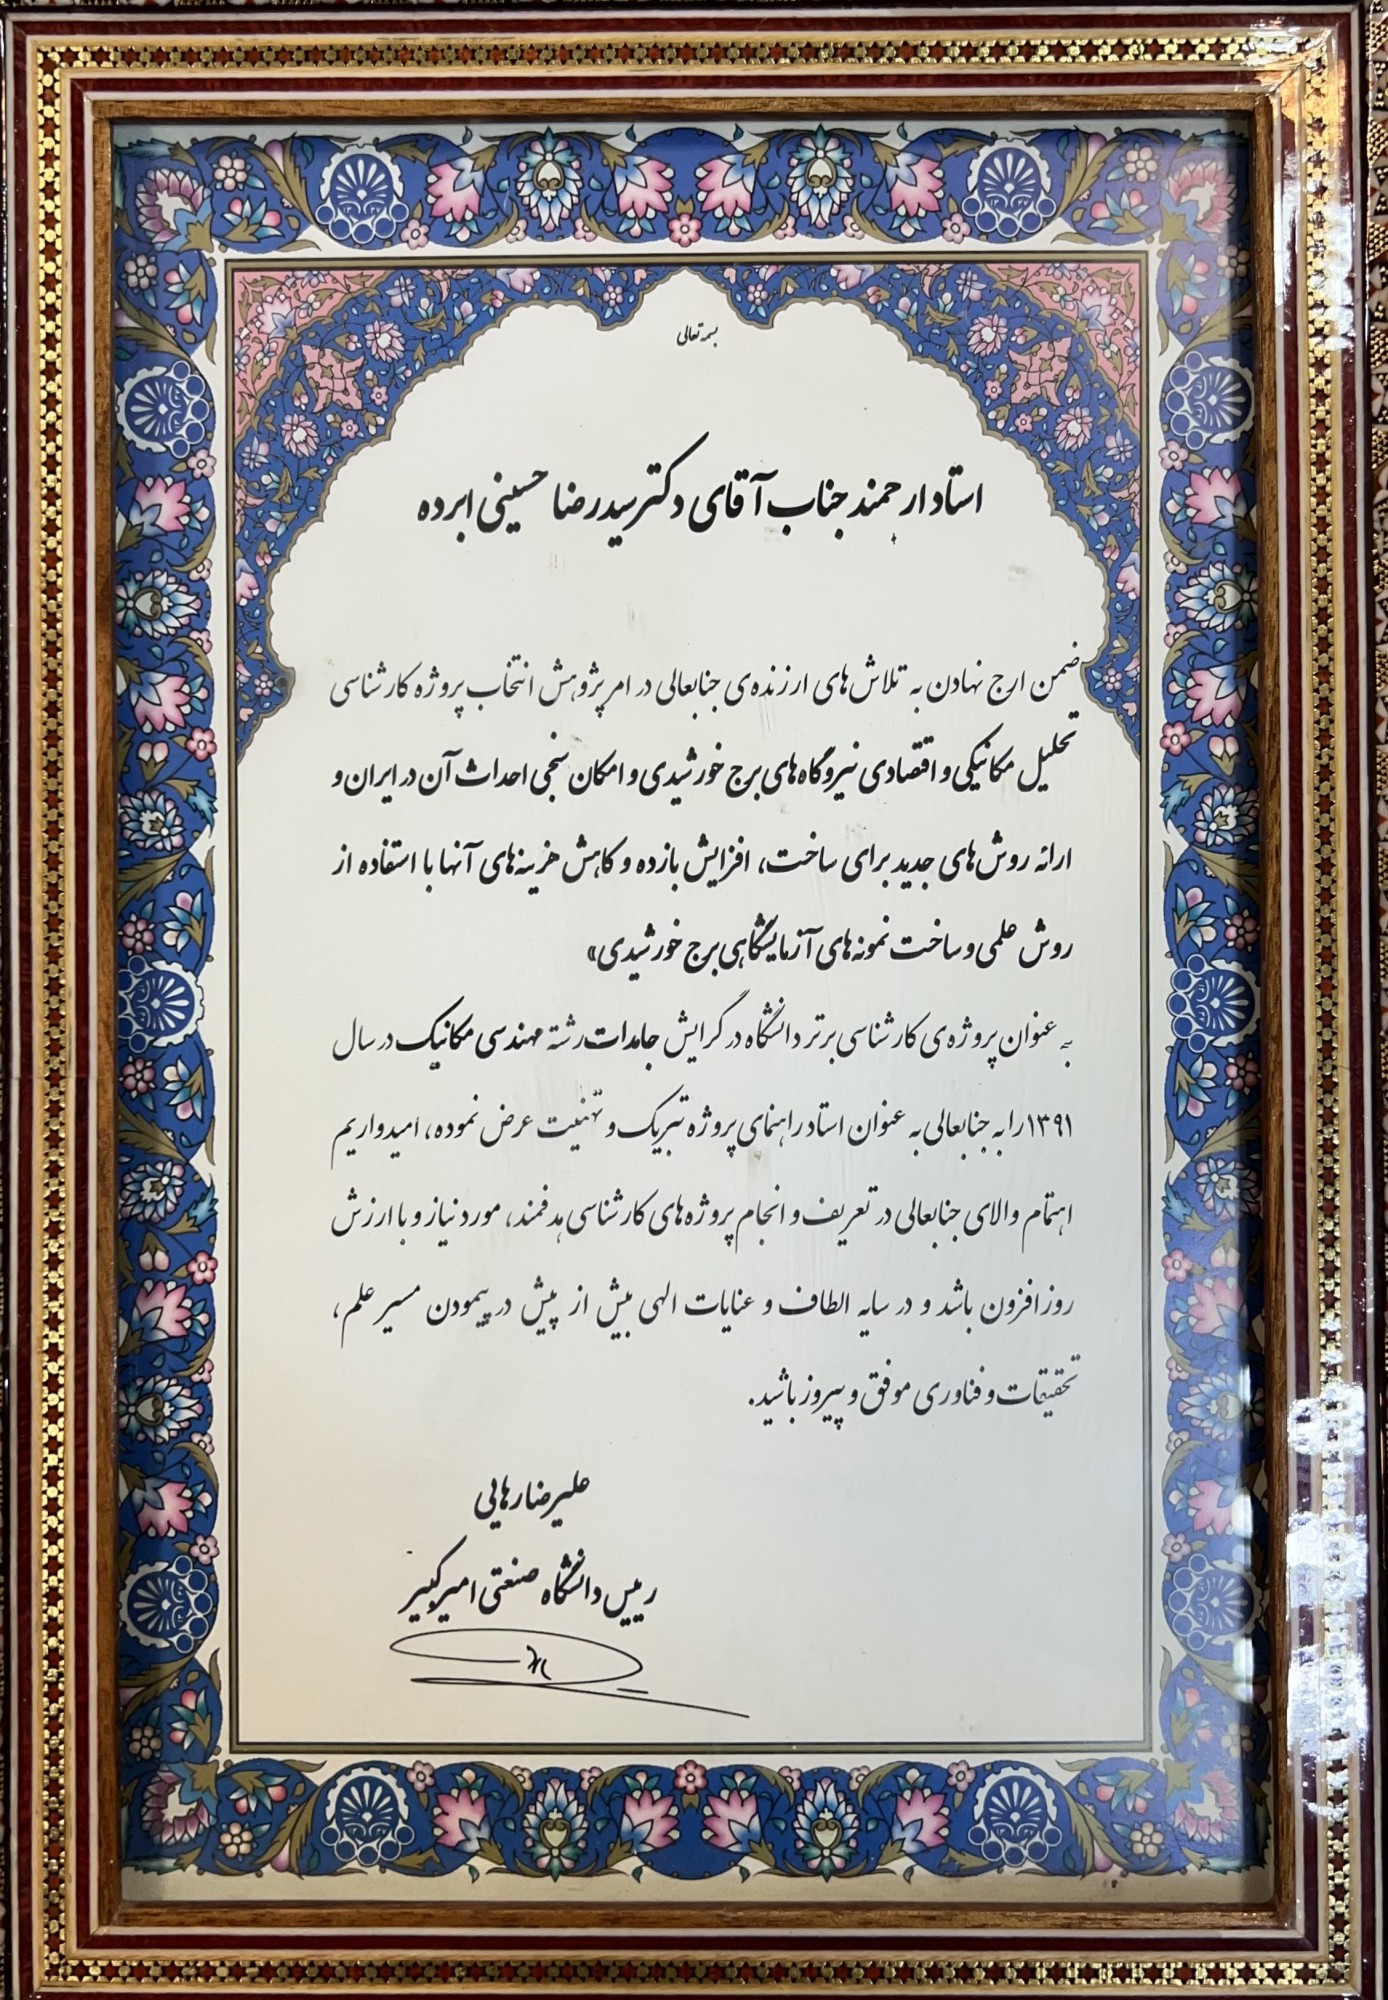 بسمه تعالی
استاد ارجمند جناب آقای دکتر سید رضا حسینی ابرده
ضمن ارج نهادن به تلاش‌های ارزنده‌ی جنابعالی در امر پژوهش انتخاب پروژه کارشناسی
تحلیل مکانیکی و اقتصادی نیروگاه‌های برج خورشیدی و امکان سنجی احداث آن در ایران و
ارائه روش‌های جدید برای ساخت، افزایش بازده و کاهش هزینه‌های آنها با استفاده از
روش علمی و ساخت نمونه‌های آزمایشگاهی برج خورشیدی»
به عنوان پروژه‌ی کارشناسی برتر دانشگاه در گرایش جامدات رشته مهندسی مکانیک در سال
۱۳۹۱ را به جنابعالی به عنوان استاد راهنمای پروژه تبریک و تهنیت عرض نموده، امیدواریم
اهتمام والای جنابعالی در تعریف و انجام پروژه‌های کارشناسی هدفمند، مورد نیاز و با ارزش
روزافزون باشد و در سایه الطاف و عنایات الهی بیش از پیش در پیمودن مسیر علم،
تحقیقات و فناوری موفق و پیروز باشید.
علیرضا رهایی
رییس دانشگاه صنعتی امیرکبیر